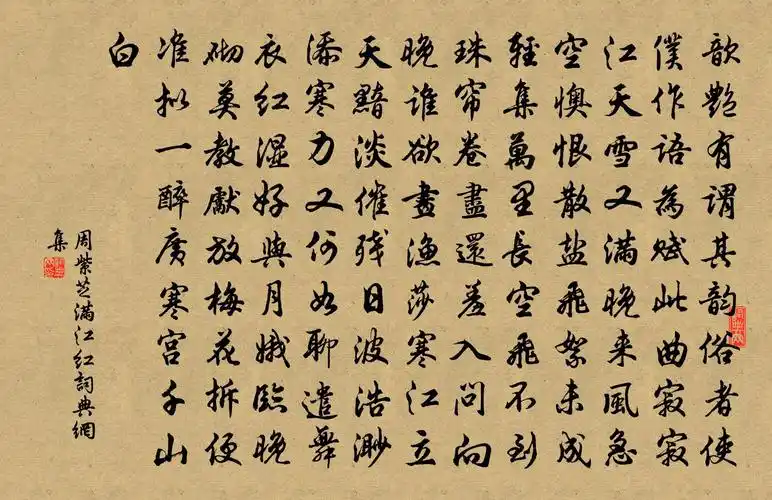 歆艷有謂其韵俗者使
僕作語為賦此曲寂寂
江天雪又滿晚來風急
空懊恨散盐飛絮未成
輕集萬里長空飛不到
珠帘卷盡還羞入問向
晚誰欲畫漁莎寒江立
天黯淡催残日波浩渺
添寒力又何如聊遣舞
衣紅濕好與月娥臨晚
砌莫教獻放梅花拆便
准拟一醉廣寒宫千山
白
周紫芝滿江红詞典網
集